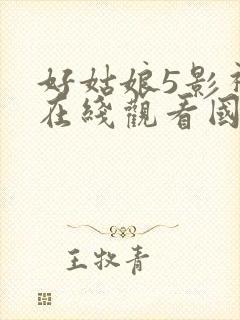 好姑娘5影视
在线觀看國
王牧青